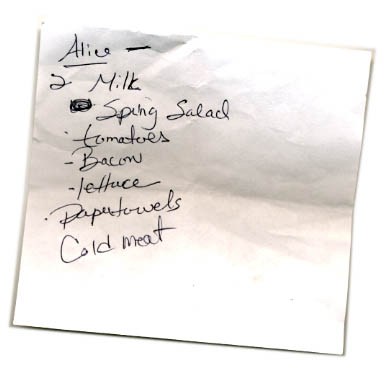 Alice —
2. Milk
Sping Salad
· tomatoes
- Bacon
- lettuce
· Papertowels
Cold meat